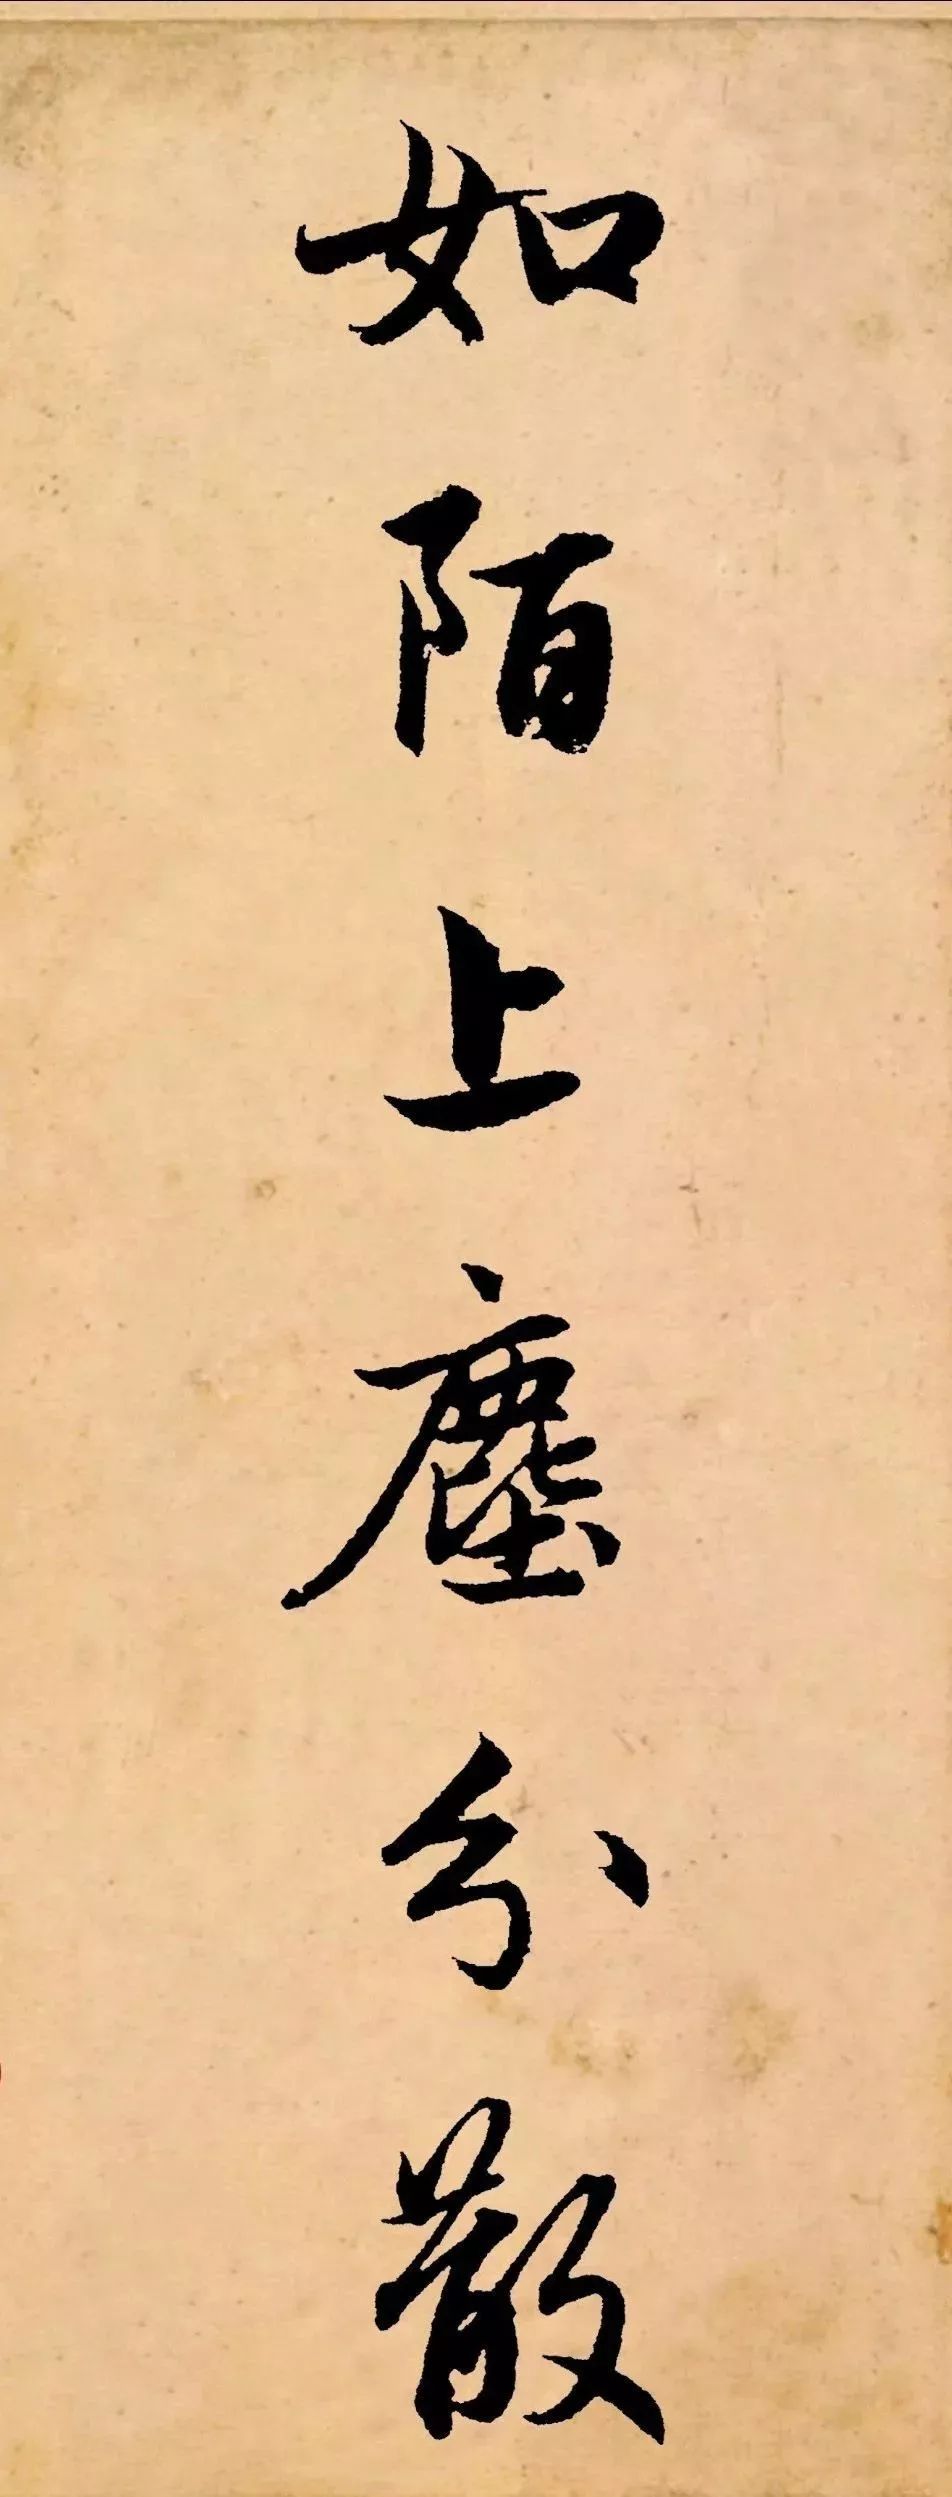 如陌上塵分散